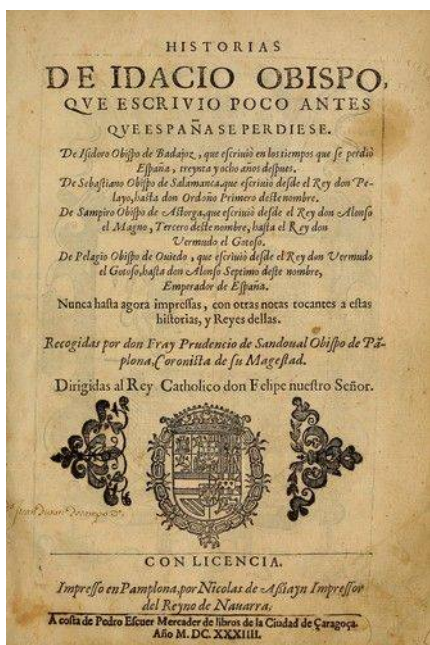 HISTORIAS
DE IDACIO OBISPO,
QVE ESCRIVIO POCO ANTES
QVE ESPAÑA SE PERDIESE.
De Isidoro Obispo de Badajoz, que escriuio en los tiempos que se perdio
España, treynta y ocho años despues.
De Sebastiano Obispo de Salamanca, que escriuio desde el Rey don Pe-
layo, hasta don Ordoño Primero deste nombre.
De Sampiro Obispo de Astorga, que escriuio desde el Rey don Alonso
el Magno, Tercero deste nombre, hasta el Rey don
Vermudo el Gotoso.
De Pelagio Obispo de Ouiedo, que escriuio desde el Rey don Vermudo
el Gotoso, hasta don Alonso Septimo deste nombre,
Emperador de España.
Nunca hasta agora impressas, con otras notas tocantes a estas
historias, y Reyes dellas.
Recogidas por don Fray Prudencio de Sandoual Obispo de Pã-
plona, Coronista de su Magestad.
Dirigidas al Rey Catholico don Felipe nuestro Señor.
CON LICENCIA.
Impresso en Pamplona, por Nicolas de Assiayn Impressor
del Reyno de Nauarra.
A costa de Pedro Escuer Mercader de libros de la Ciudad de Çaragoça.
Año M. DC. XXXIIII.